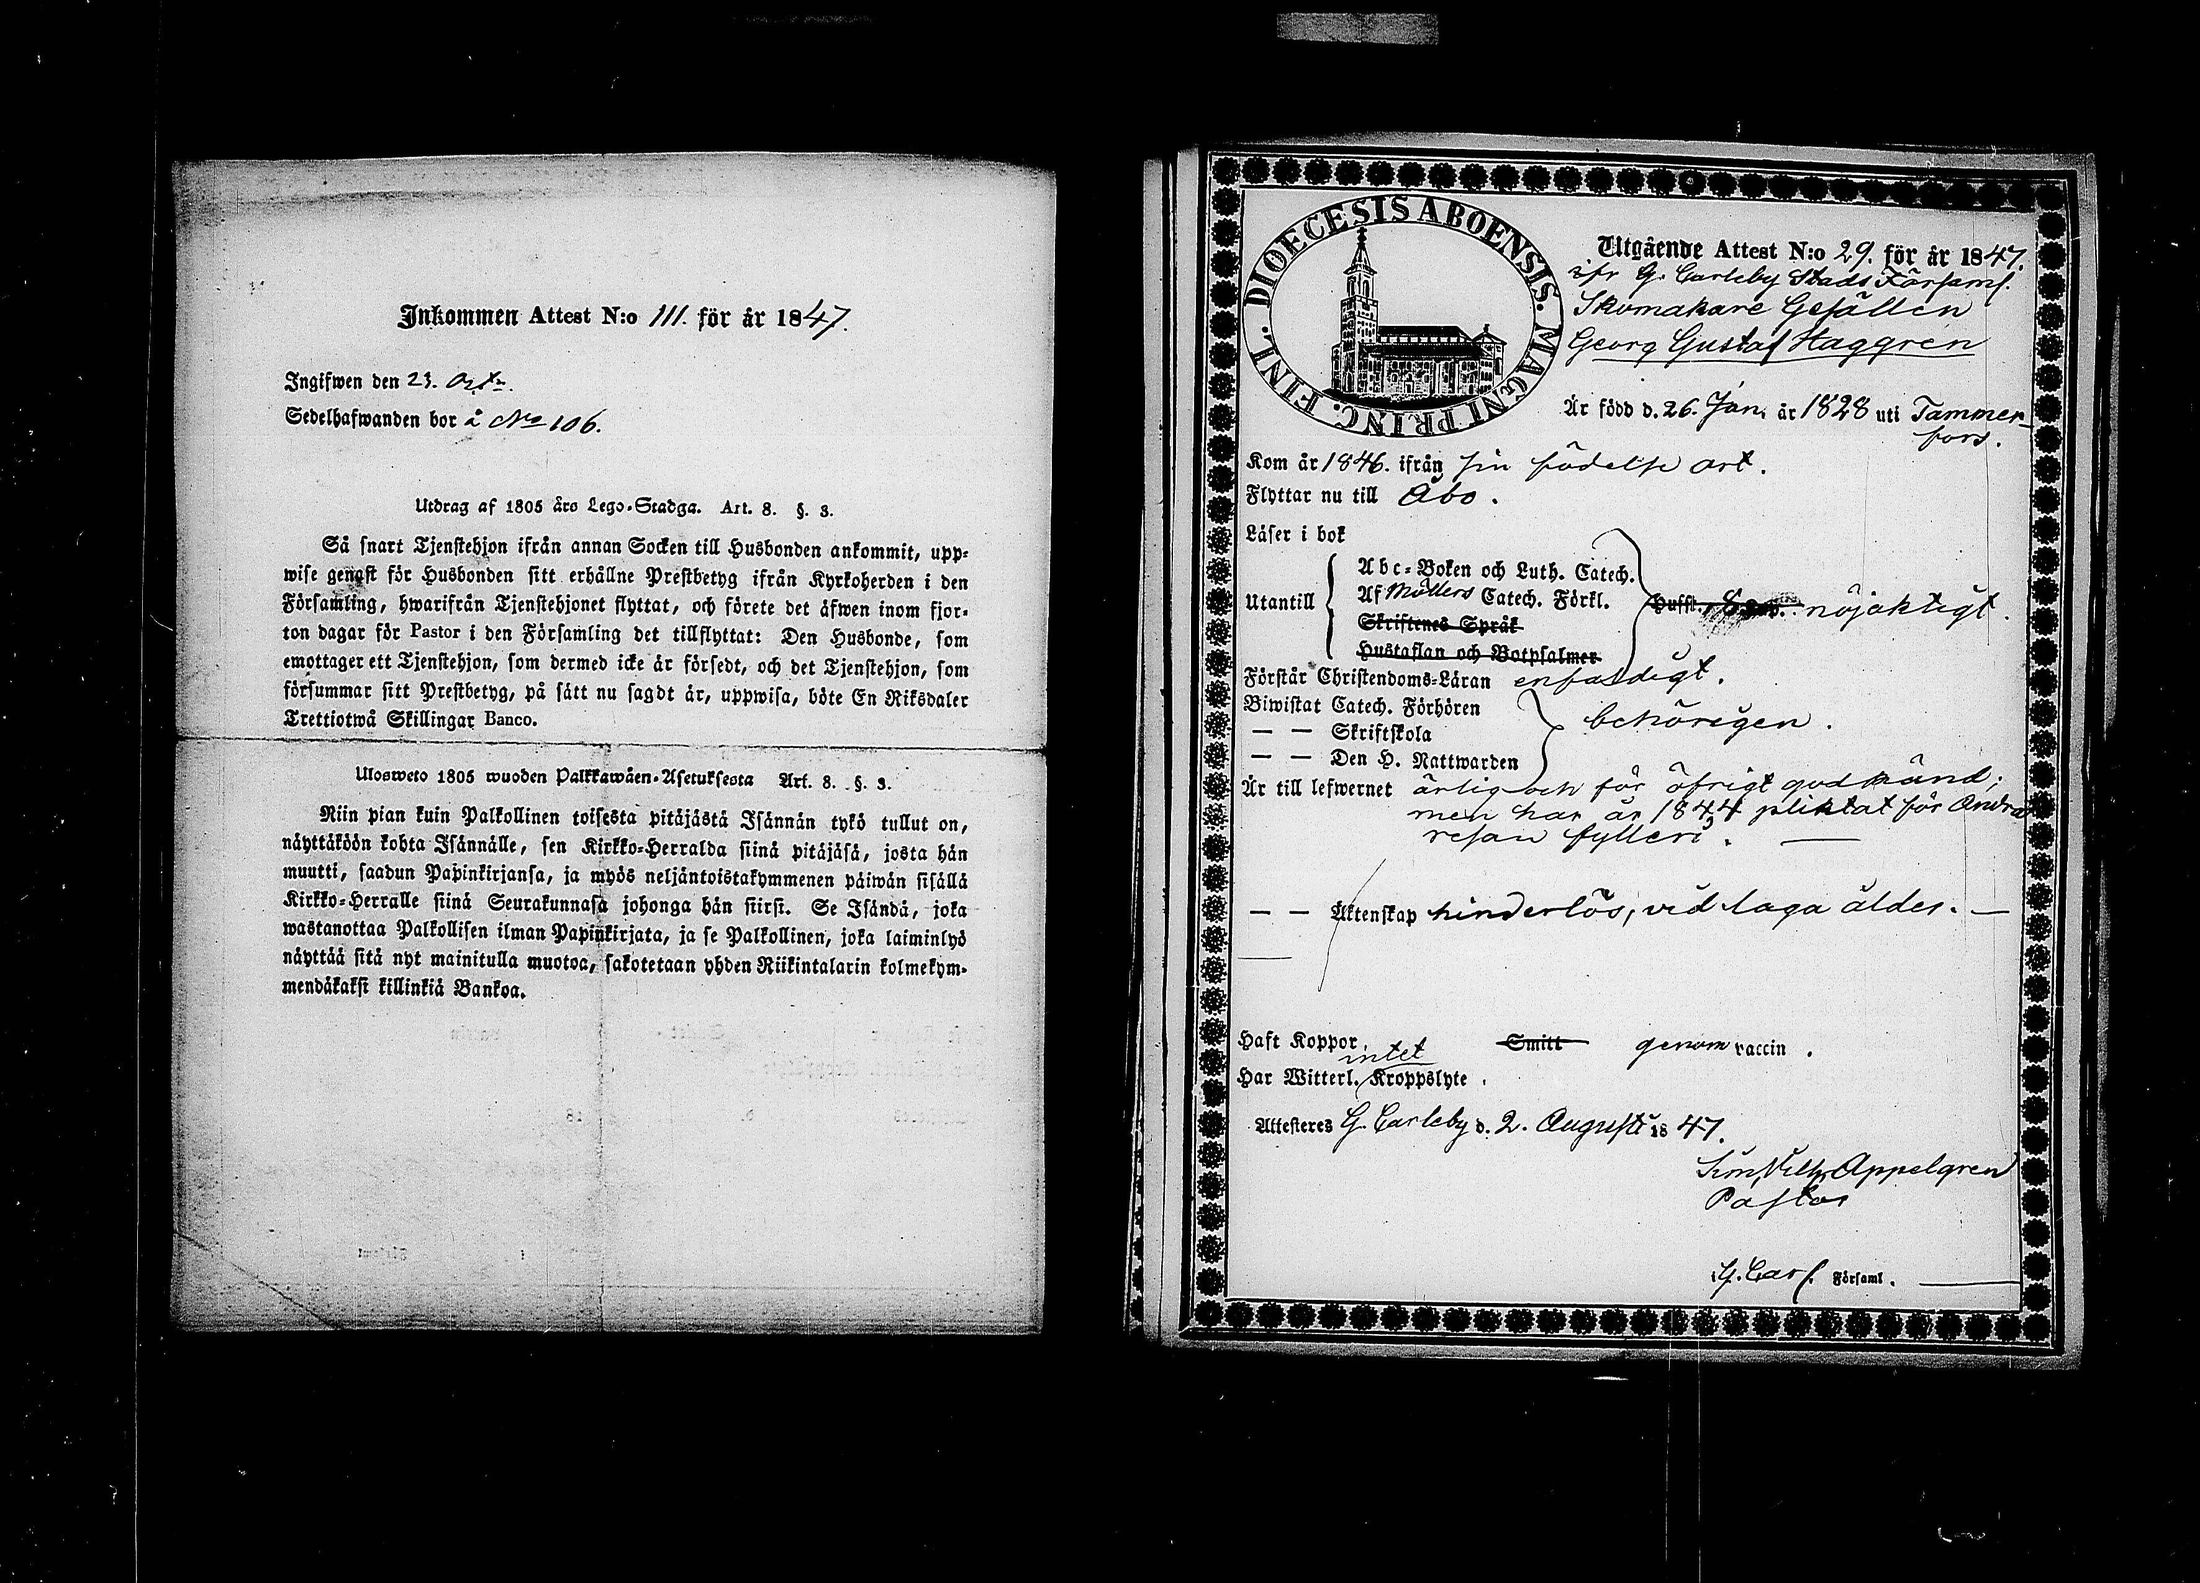 Inkommen Attest N:o 111. för år 1847.
Ingifwen den 23. Octr.
Sedelhafwanden bor å No 106.
Utdrag af 1805 års Lego-Stadga. Art. 8. §. 3.
Så snart Tjenstehjon ifrån annan Socken till Husbonden ankommit, upp-
wise genast för Husbonden sitt erhållne Prestbetyg ifrån Kyrkoherden i den
Församling, hwarifrån Tjenstehjonet flyttat, och förete det äfwen inom fjor-
ton dagar för Pastor i den Församling det tillflyttat: Den Husbonde, som
emottager ett Tjenstehjon, som dermed icke är försedt, och det Tjenstehjon, som
försummar sitt Prestbetyg, på sätt nu sagdt är, uppwisa, böte En Riksdaler
Trettiotwå Skillingar Banco.
Ulosweto 1805 wuoden Palkkawäen-Asetuksesta Art. 8. §. 3.
Niin pian kuin Palkollinen toisesta pitäjästä Isännän tykö tullut on,
näyttäköön kohta Isännälle, sen Kirkko-Herralda siinä pitäjäsä, josta hän
muutti, saadun Papinkirjansa, ja myös neljäntoistakymmenen päiwän sisällä
Kirkko-Herralle siinä Seurakunnasa johonga hän siirsi. Se Isändä, joka
wastanottaa Palkollisen ilman Papinkirjata, ja se Palkollinen, joka laiminlyö
näyttää sitä nyt mainitulla muotoa, sakotetaan yhden Riikintalarin kolmekym-
mendäkaksi killinkiä Bankoa.
DIOECESIS ABOENSIS. MAGNI PRINC. FINL.
Utgående Attest N:o 29. för år 1847.
ifr G. Carleby Stads Församl.
Skomakare Gesällen
Georg Gustaf Haggrén
Är född d. 26. Jan. år 1828 uti Tammer-
fors.
Kom år 1846. ifrån sin födelse ort.
Flyttar nu till Åbo.
Läser i bok
Abc-Boken och Luth. Catech.
Utantill Af Möllers Catech. Förkl. nöjaktigt.
Skriftenes Språk
Hustaflan och Botpsalmer
Förstår Christendoms-Läran enfaldigt.
Biwistat Catech. Förhören
— — Skriftskola behörigen.
— — Den H. Nattwarden
Är till lefwernet ärlig och för öfrigt godkänd;
men har år 1844 pliktat för Andra
resan fylleri. —
— — Äktenskap hinderlös, vid laga ålder. —
Haft Koppor, Smitt genom vaccin.
intet
Har Witterl. Kroppslyte.
Attesteres G. Carleby d. 2. Augusti 1847.
Sim. Vilh. Appelgren
Pastor
G. Carl. Församl.